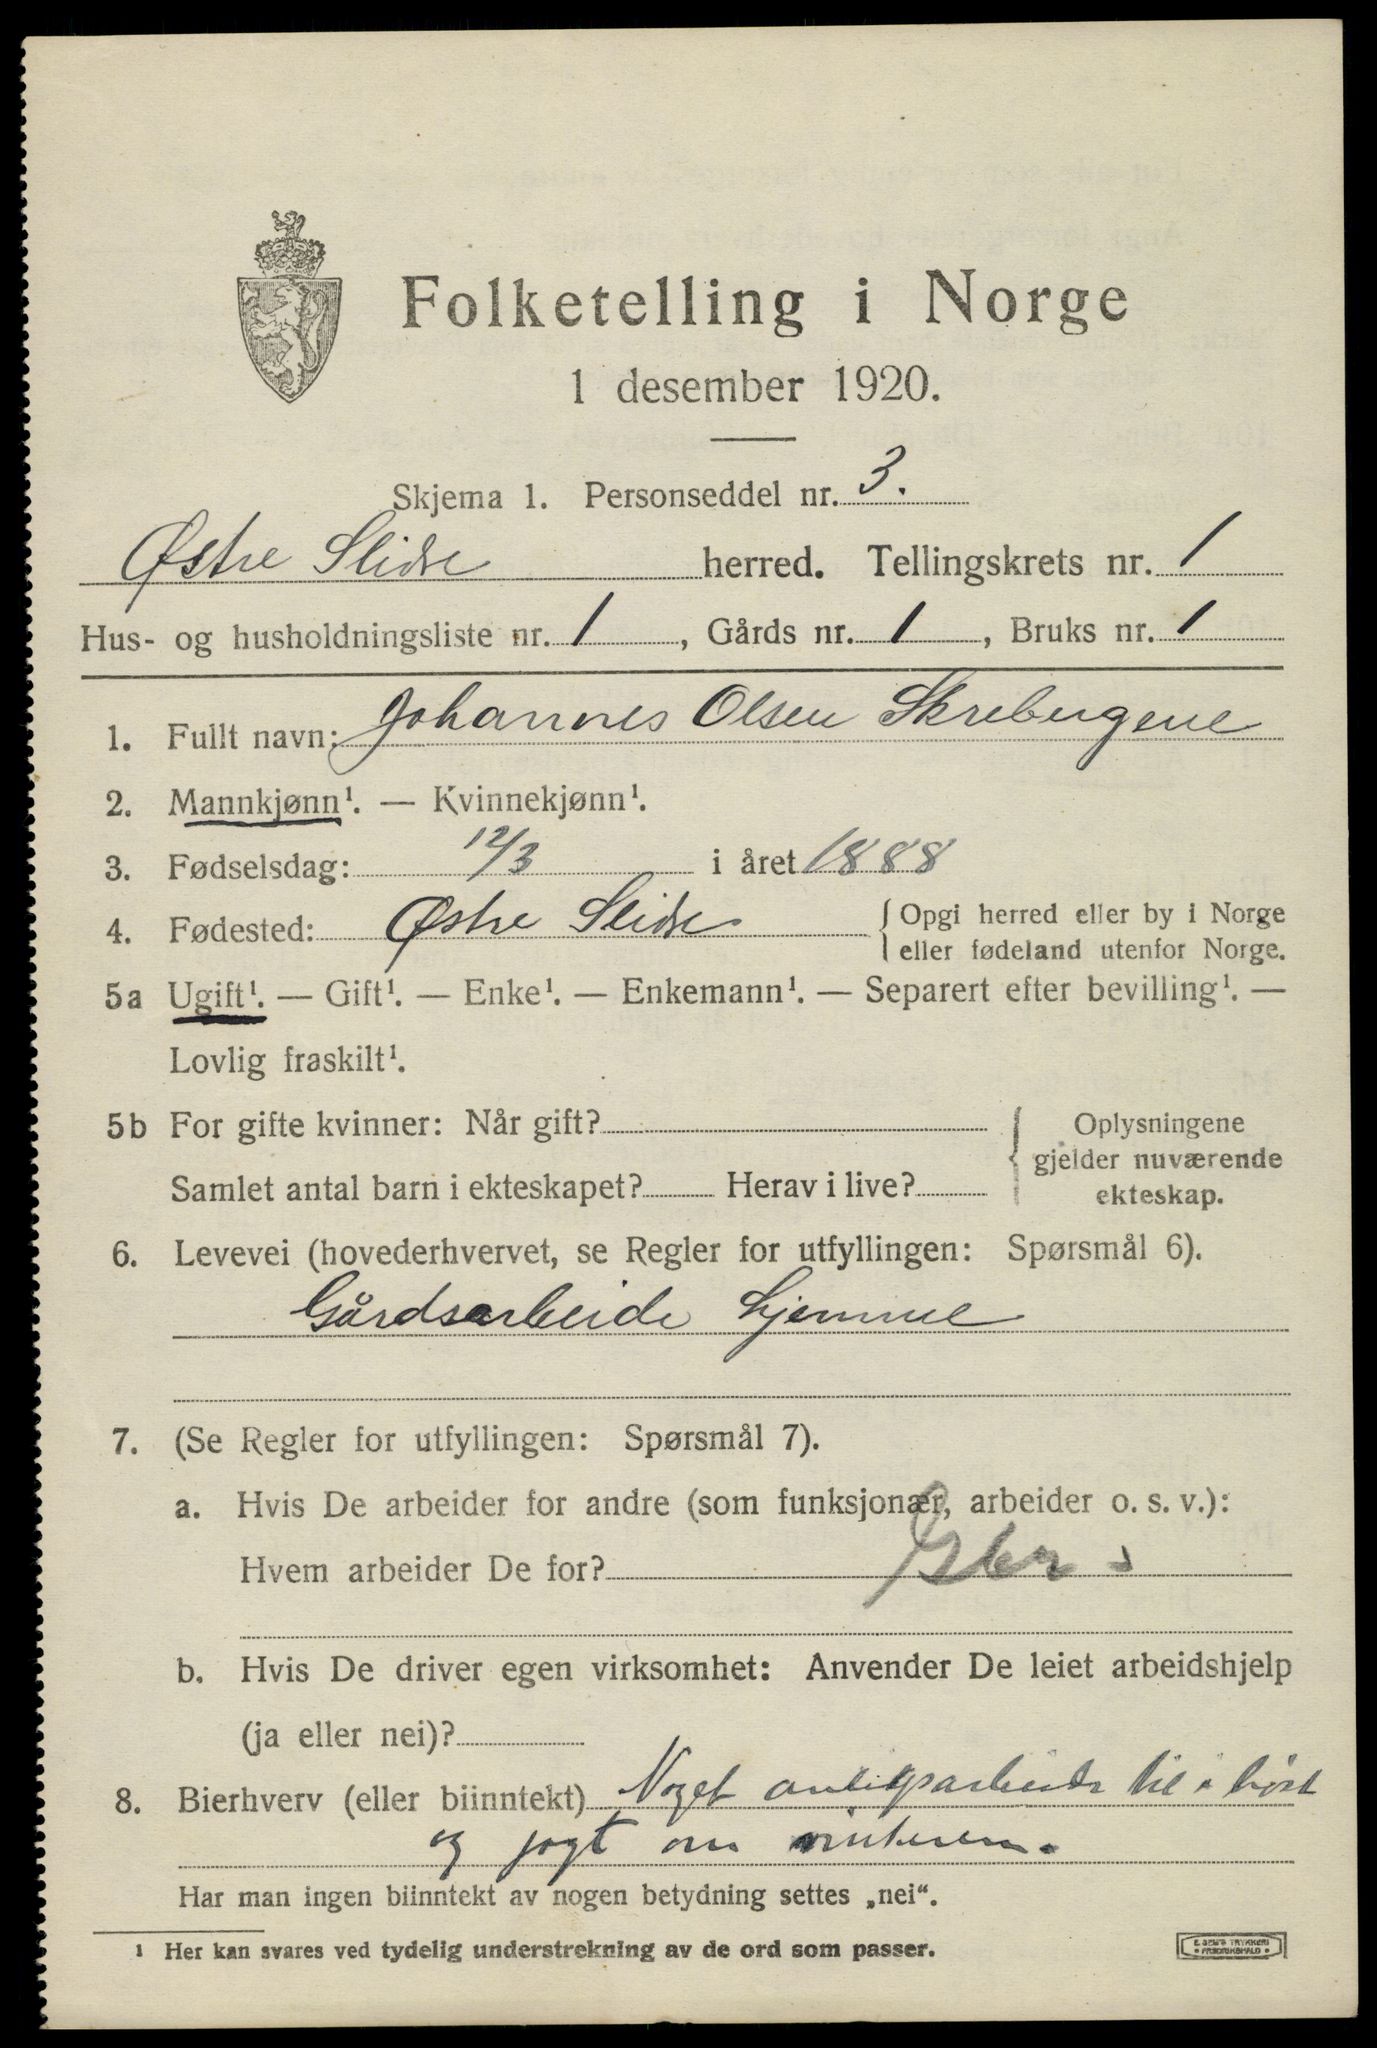 Folketelling i Norge
1 desember 1920.
Skjema 1. Personseddel nr. 3.
Østre Slidre herred. Tellingskrets nr. 1
Hus- og husholdningsliste nr. 1, Gårds nr. 1, Bruks nr. 1
1. Fullt navn: Johannes Olsen Skrebergene
2. Mannkjønn¹. — Kvinnekjønn¹.
3. Fødselsdag: 12/3 i året 1888
4. Fødested: Østre Slidre { Opgi herred eller by i Norge
eller fødeland utenfor Norge.
5a Ugift¹. — Gift¹. — Enke¹. — Enkemann¹. — Separert efter bevilling¹. —
Lovlig fraskilt¹.
5b For gifte kvinner: Når gift? { Oplysningene
gjelder nuværende
Samlet antal barn i ekteskapet? Herav i live?
ekteskap.
6. Levevei (hovederhvervet, se Regler for utfyllingen: Spørsmål 6).
Gårdsarbeide hjemme
7. (Se Regler for utfyllingen: Spørsmål 7).
a. Hvis De arbeider for andre (som funksjonær, arbeider o. s. v.):
Hvem arbeider De for? Gbr
b. Hvis De driver egen virksomhet: Anvender De leiet arbeidshjelp
(ja eller nei)?
8. Bierhverv (eller biinntekt) Noget til i høst
og jagt om vinteren.
Har man ingen biinntekt av nogen betydning settes „nei“.
¹ Her kan svares ved tydelig understrekning av de ord som passer.